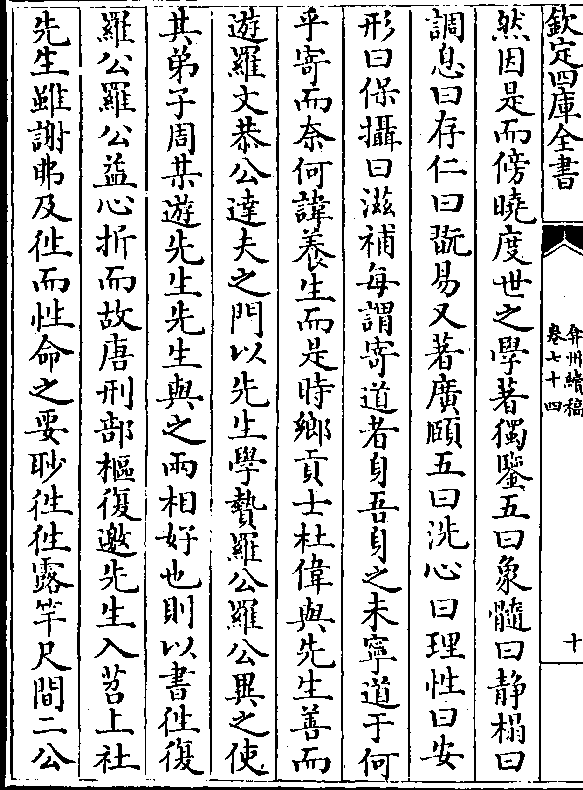 欽定四庫全書
弇州續稿
卷七十四
十
然因是而傍曉度世之學著獨鑒五曰象髓曰静榻曰
調息曰存仁曰翫易又著廣頤五曰洗心曰理性曰安
形曰保攝曰滋補每謂寄道者身吾身之未寧道于何
乎寄而奈何諱養生而是時鄉貢士杜偉與先生善而
遊羅文恭公達夫之門以先生學贄羅公羅公異之使
其弟子周某遊先生先生與之兩相好也則以書徃復
羅公羅公益心折而故唐刑部樞復邀先生入苕上社
先生雖謝弗及徃而性命之要眇徃徃露竿尺間二公